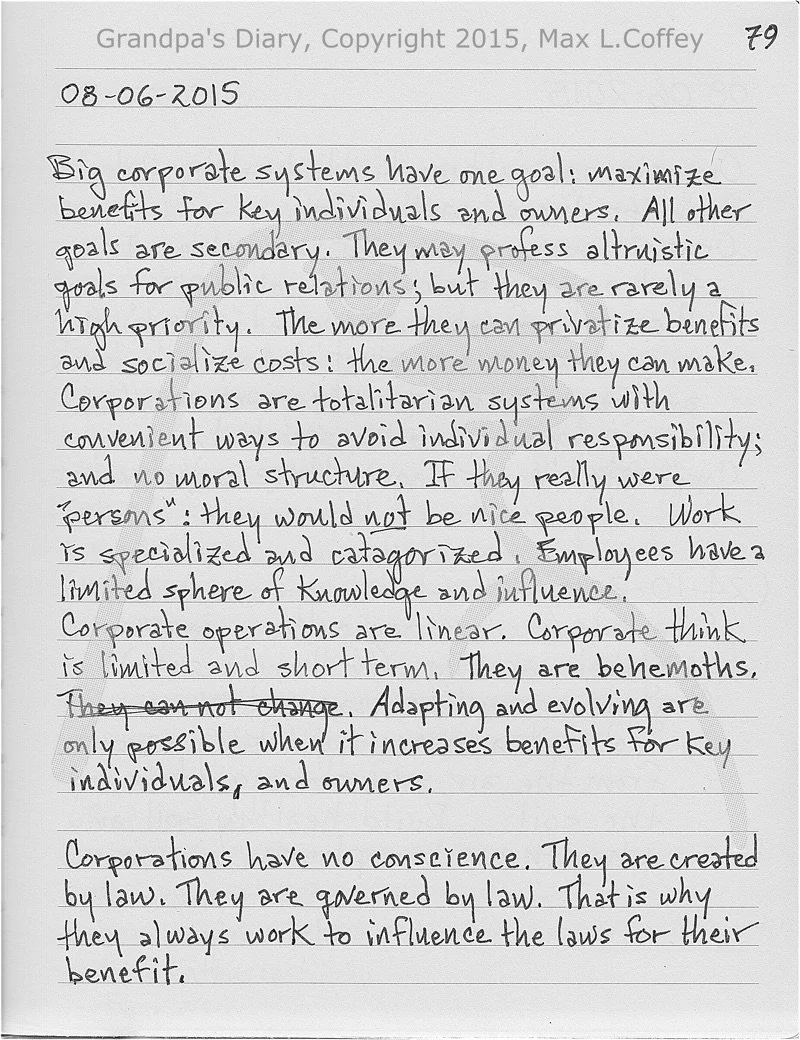 Grandpa's Diary, Copyright 2015, Max L.Coffey 79
08-06-2015
Big corporate systems have one goal: maximize
benefits for key individuals and owners. All other
goals are secondary. They may profess altruistic
goals for public relations; but they are rarely a
high priority. The more they can privatize benefits
and socialize costs: the more money they can make.
Corporations are totalitarian systems with
convenient ways to avoid individual responsibility;
and no moral structure. If they really were
"persons": they would not be nice people. Work
is specialized and catagorized. Employees have a
limited sphere of knowledge and influence.
Corporate operations are linear. Corporate think
is limited and short term. They are behemoths.
They can not change. Adapting and evolving are
only possible when it increases benefits for key
individuals, and owners.
Corporations have no conscience. They are created
by law. They are governed by law. That is why
they always work to influence the laws for their
benefit.